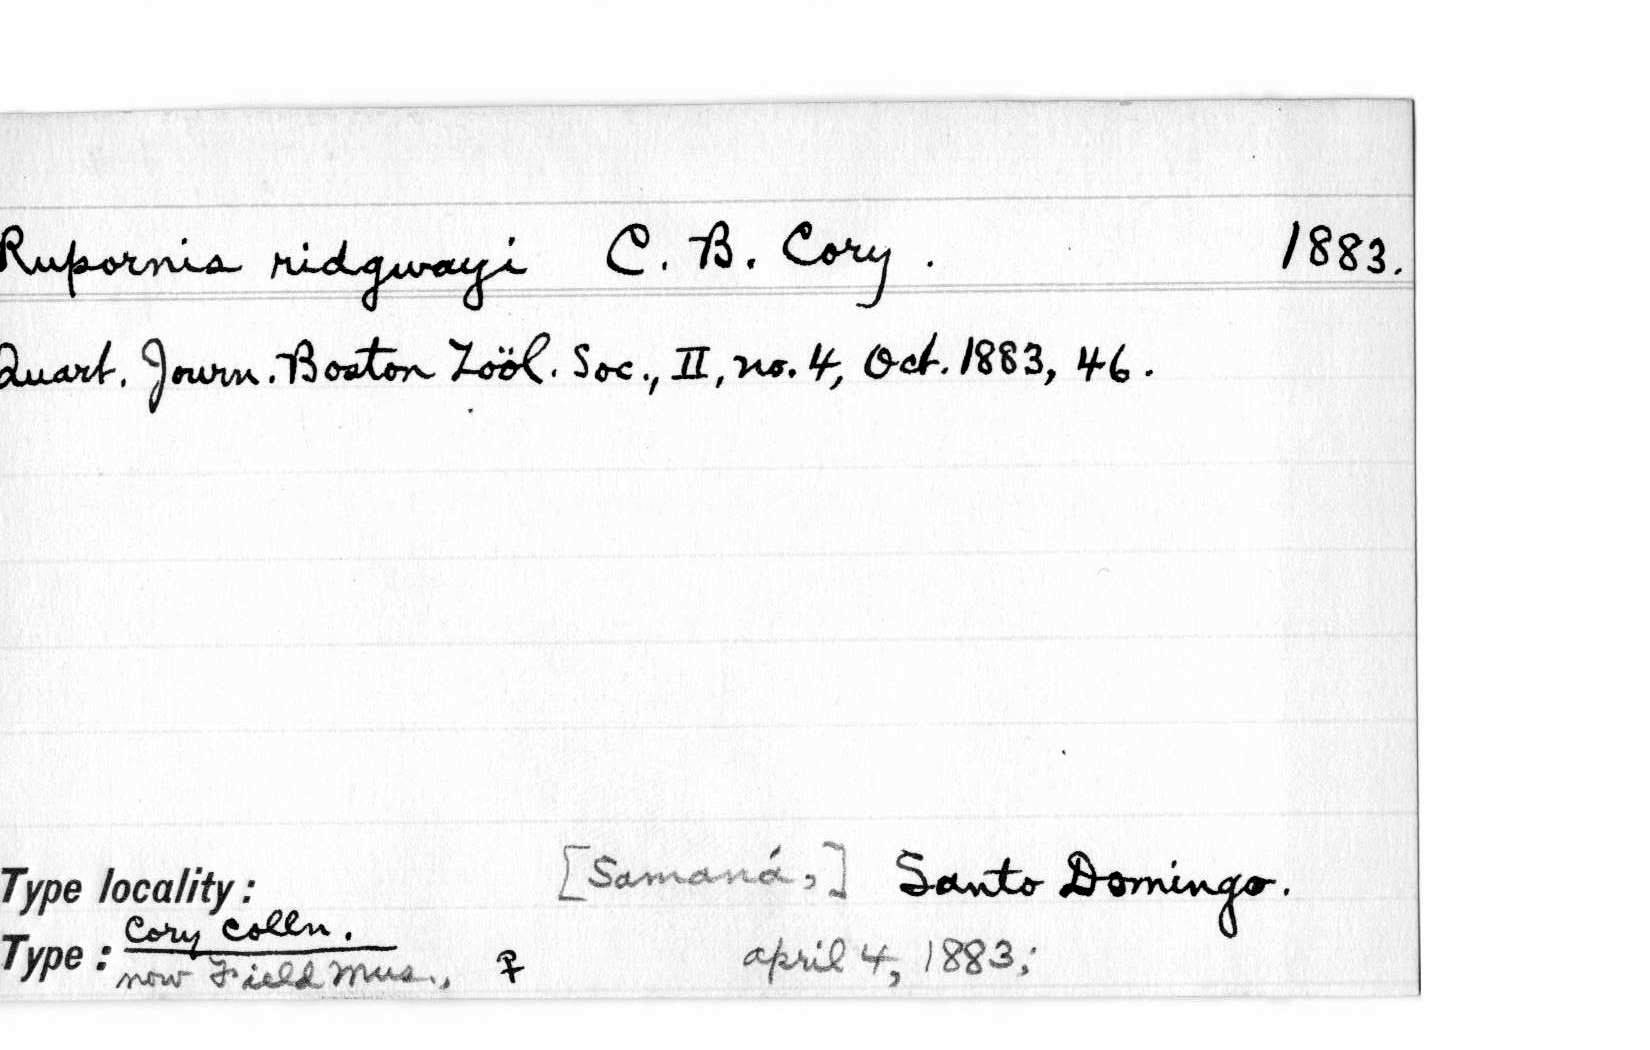 Rupornis ridgwayi C. B. Cory. 1883.
Quart. Journ. Boston Zoöl. Soc., II, no. 4, Oct. 1883, 46.
Type locality: [Samaná,] Santo Domingo.
Cory Colln.
Type: now Field Mus., ♀ april 4, 1883;